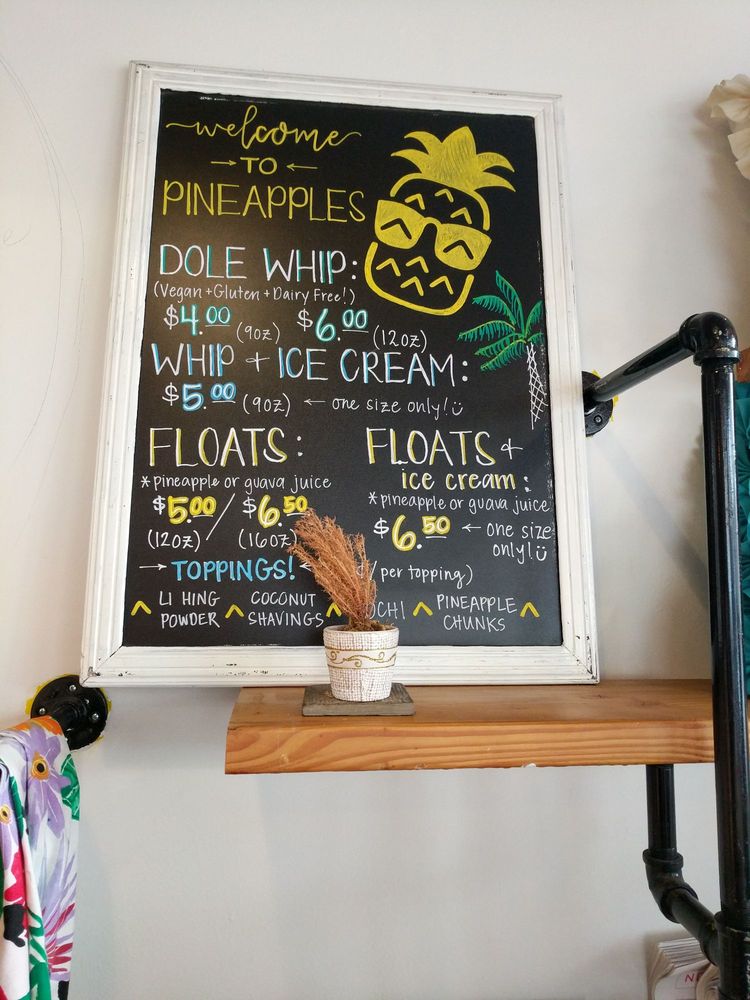 welcome
→TO←
PINEAPPLES
DOLE WHIP:
(Vegan + Gluten + Dairy Free!)
$4.00 (9oz) $6.00 (12oz)
WHIP + ICE CREAM:
$5.00 (9oz) ← one size only! ü
FLOATS:
*pineapple or guava juice
$5.00 / $6.50
(12oz) (16oz)
FLOATS +
ice cream:
*pineapple or guava juice
$6.50 ← one size
only! ü
→ TOPPINGS! ← /per topping)
LI HING
POWDER
COCONUT
SHAVINGS
PINEAPPLE
CHUNKS